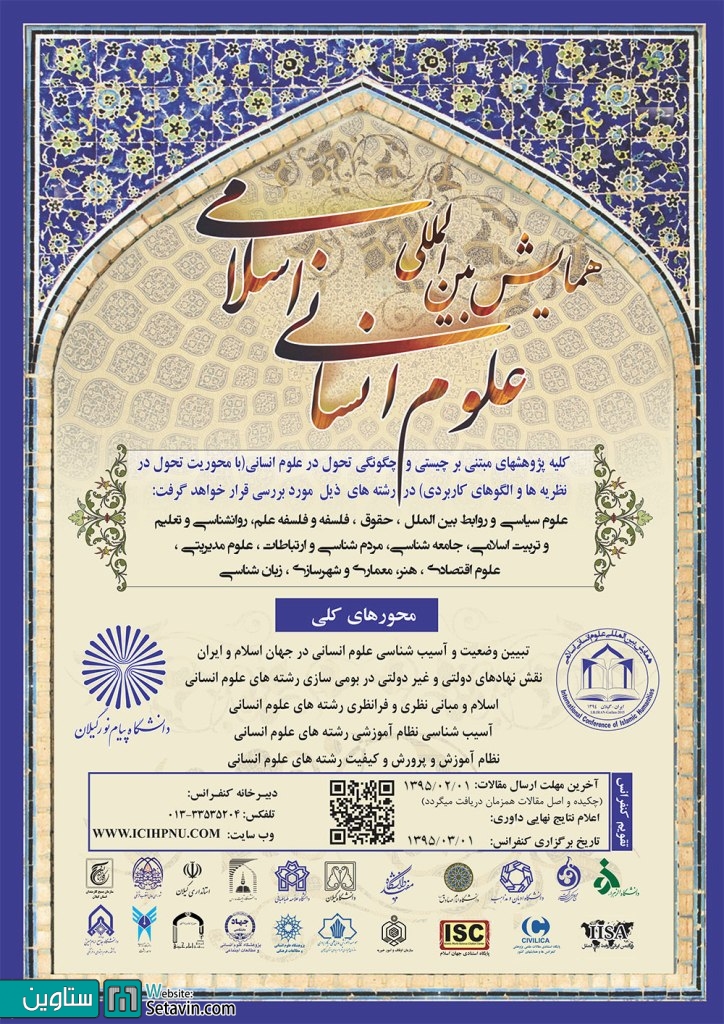 همایش بین المللی
علوم انسانی اسلامی
کلیه پژوهشهای مبتنی بر چیستی و چگونگی تحول در علوم انسانی(با محوریت تحول در
نظریه ها و الگوهای کاربردی) در رشته های ذیل مورد بررسی قرار خواهد گرفت:
علوم سیاسی و روابط بین الملل ، حقوق ، فلسفه و فلسفه علم، روانشناسی و تعلیم
و تربیت اسلامی، جامعه شناسی، مردم شناسی و ارتباطات ، علوم مدیریتی ،
علوم اقتصادی ، هنر، معماری و شهرسازی ، زبان شناسی
محورهای کلی
تبیین وضعیت و آسیب شناسی علوم انسانی در جهان اسلام و ایران
نقش نهادهای دولتی و غیر دولتی در بومی سازی رشته های علوم انسانی
اسلام و مبانی نظری و فرانظری رشته های علوم انسانی
آسیب شناسی نظام آموزشی رشته های علوم انسانی
نظام آموزش و پرورش و کیفیت رشته های علوم انسانی
همایش بین المللی علوم انسانی اسلامی
ایران - گیلان ۱۳۹۴
International Conference of Islamic Humanities
دانشگاه پیام نور گیلان
تقویم کنفرانس
آخرین مهلت ارسال مقالات: ۱۳۹۵/۰۲/۰۱
(چکیده و اصل مقالات همزمان دریافت میگردد)
اعلام نتایج نهایی داوری:
تاریخ برگزاری کنفرانس: ۱۳۹۵/۰۳/۰۱
دبیرخانه کنفرانس:
تلفکس: ۳۳۵۳۵۲۰۴-۰۱۳
وب سایت: WWW.ICIHPNU.COM
دانشگاه الزهرا
دانشگاه ادیان و مذاهب
دانشگاه گیلان
دانشگاه علامه طباطبائی
استانداری گیلان
IISA
CIVILICA
ISC
پایگاه استنادی جهان اسلام
سازمان اوقاف و امور خیریه
جهاد
ستاوین
Website:
Setavin.com